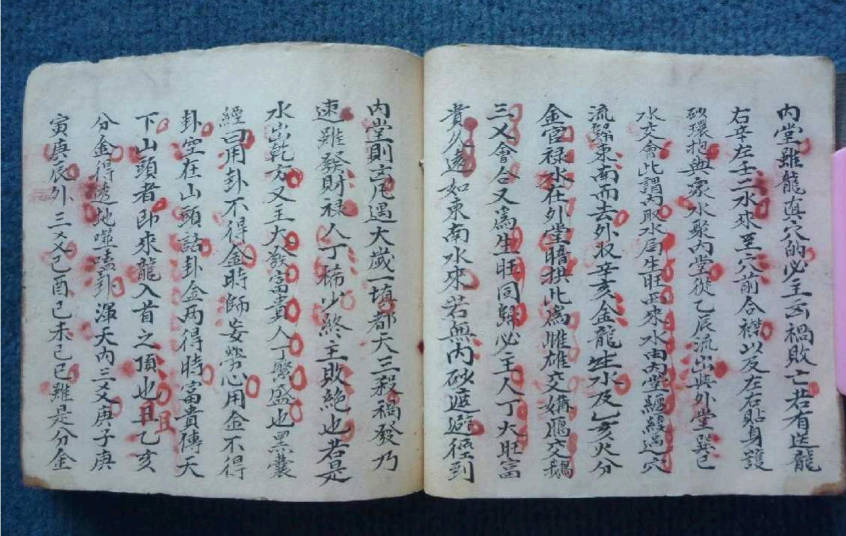 內堂雖龍真穴的必主云禍敗亡若有送龍
右辛左壬二水來至穴前合襟以及左右貼身護
砂環抱與衆水聚內堂從乙辰流出與外堂巽巳
水交會此謂內取水局生旺西來水由內堂經繞過穴
流歸東南而去外收辛亥金龍生水及乙亥火分
金官祿水在外堂暗拱此為雌雄交媾鴈交鵝
三叉會合又為生旺同歸必主人丁大旺富
貴久遠如東南水來若無內砂遮避徑到
內堂則玄凡遇大歲一填都天三殺禍發乃
速雖發財祿人丁稀少終主敗絕也若是
水出乾方又主大發富貴人丁繁盛也黑囊
經曰用卦不得金時師妄勞心用金不得
卦空在山頭詰卦金两得時富貴傳天
下山頭者即來龍入首之頂也且乙亥
分金得透地噬嗑卦渾天內三爻庚子庚
寅庚辰外三爻己酉己未己巳雖是分金